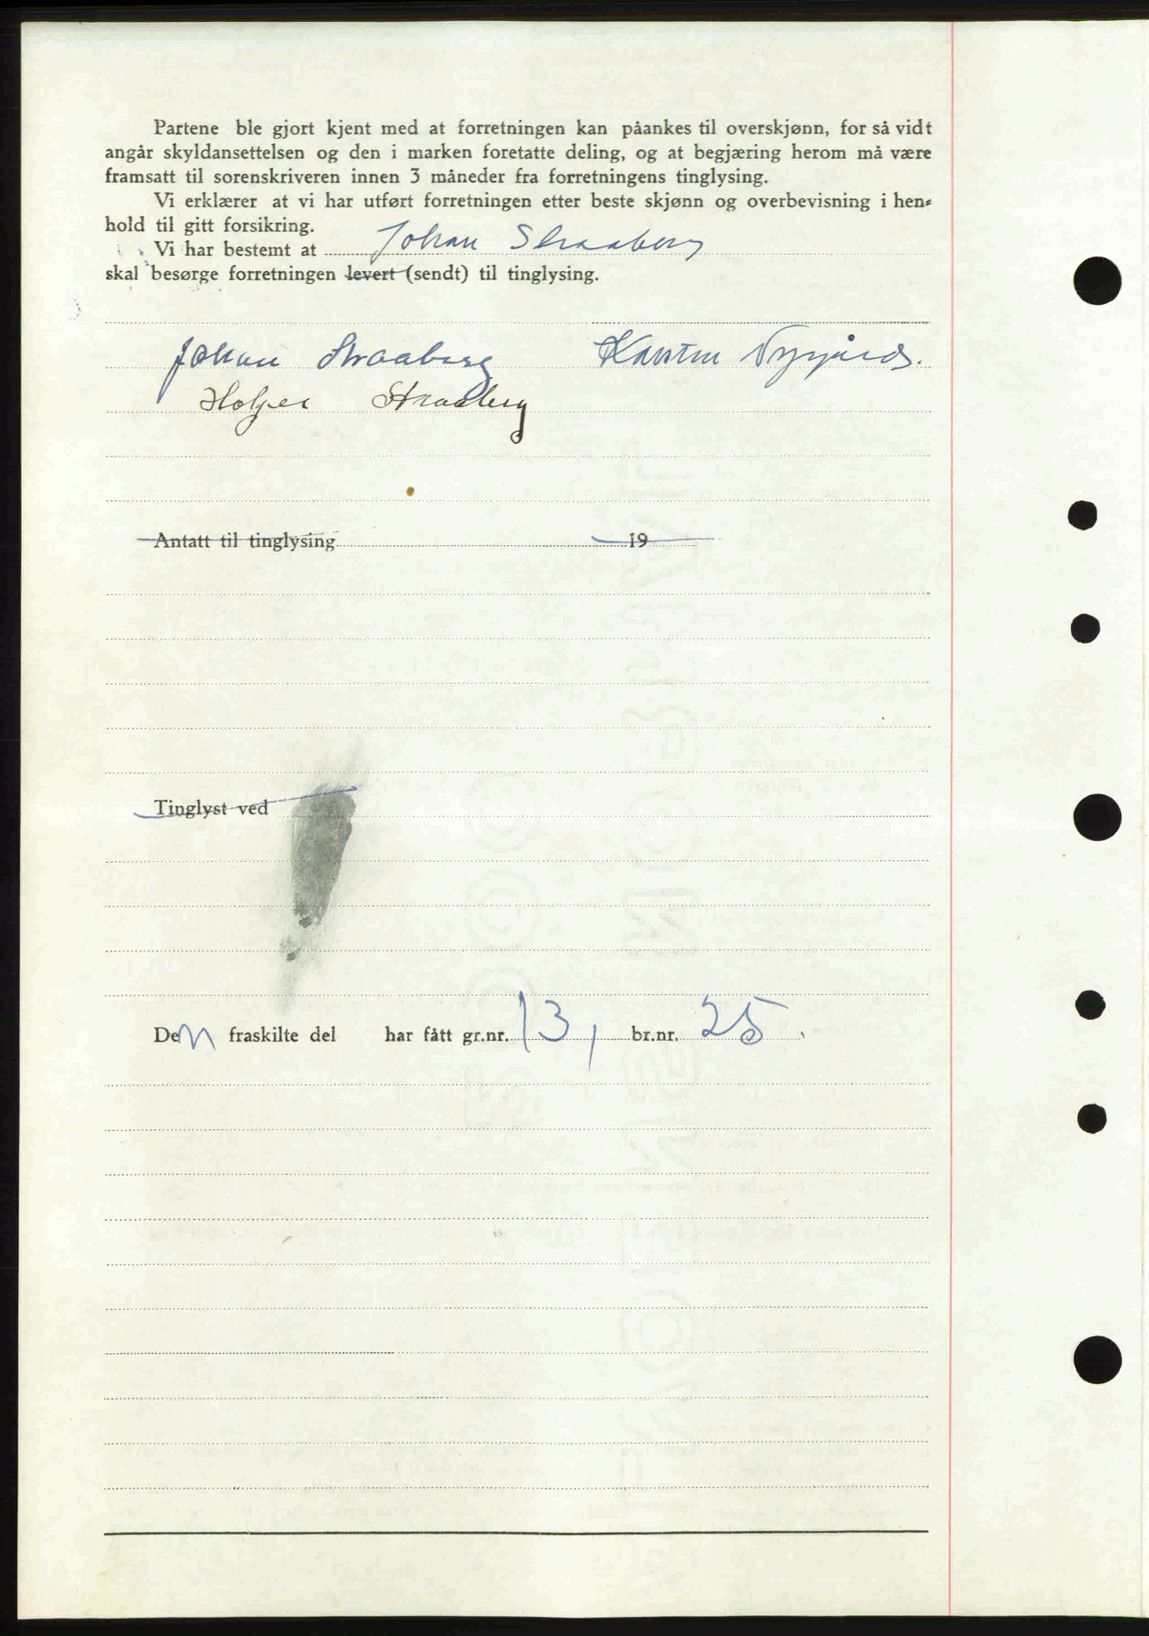 Partene ble gjort kjent med at forretningen kan påankes til overskjønn, for så vidt
angår skyldansettelsen og den i marken foretatte deling, og at begjæring herom må være
framsatt til sorenskriveren innen 3 måneder fra forretningens tinglysing.
Vi erklærer at vi har utført forretningen etter beste skjønn og overbevisning i hen-
hold til gitt forsikring.
Vi har bestemt at Johan Straaberg
skal besørge forretningen levert (sendt) til tinglysing.
Johan Straaberg Karsten Nygård.
Holger Straaberg
Antatt til tinglysing 19
Tinglyst ved
Den fraskilte del har fått gr.nr. 13, br.nr. 25.